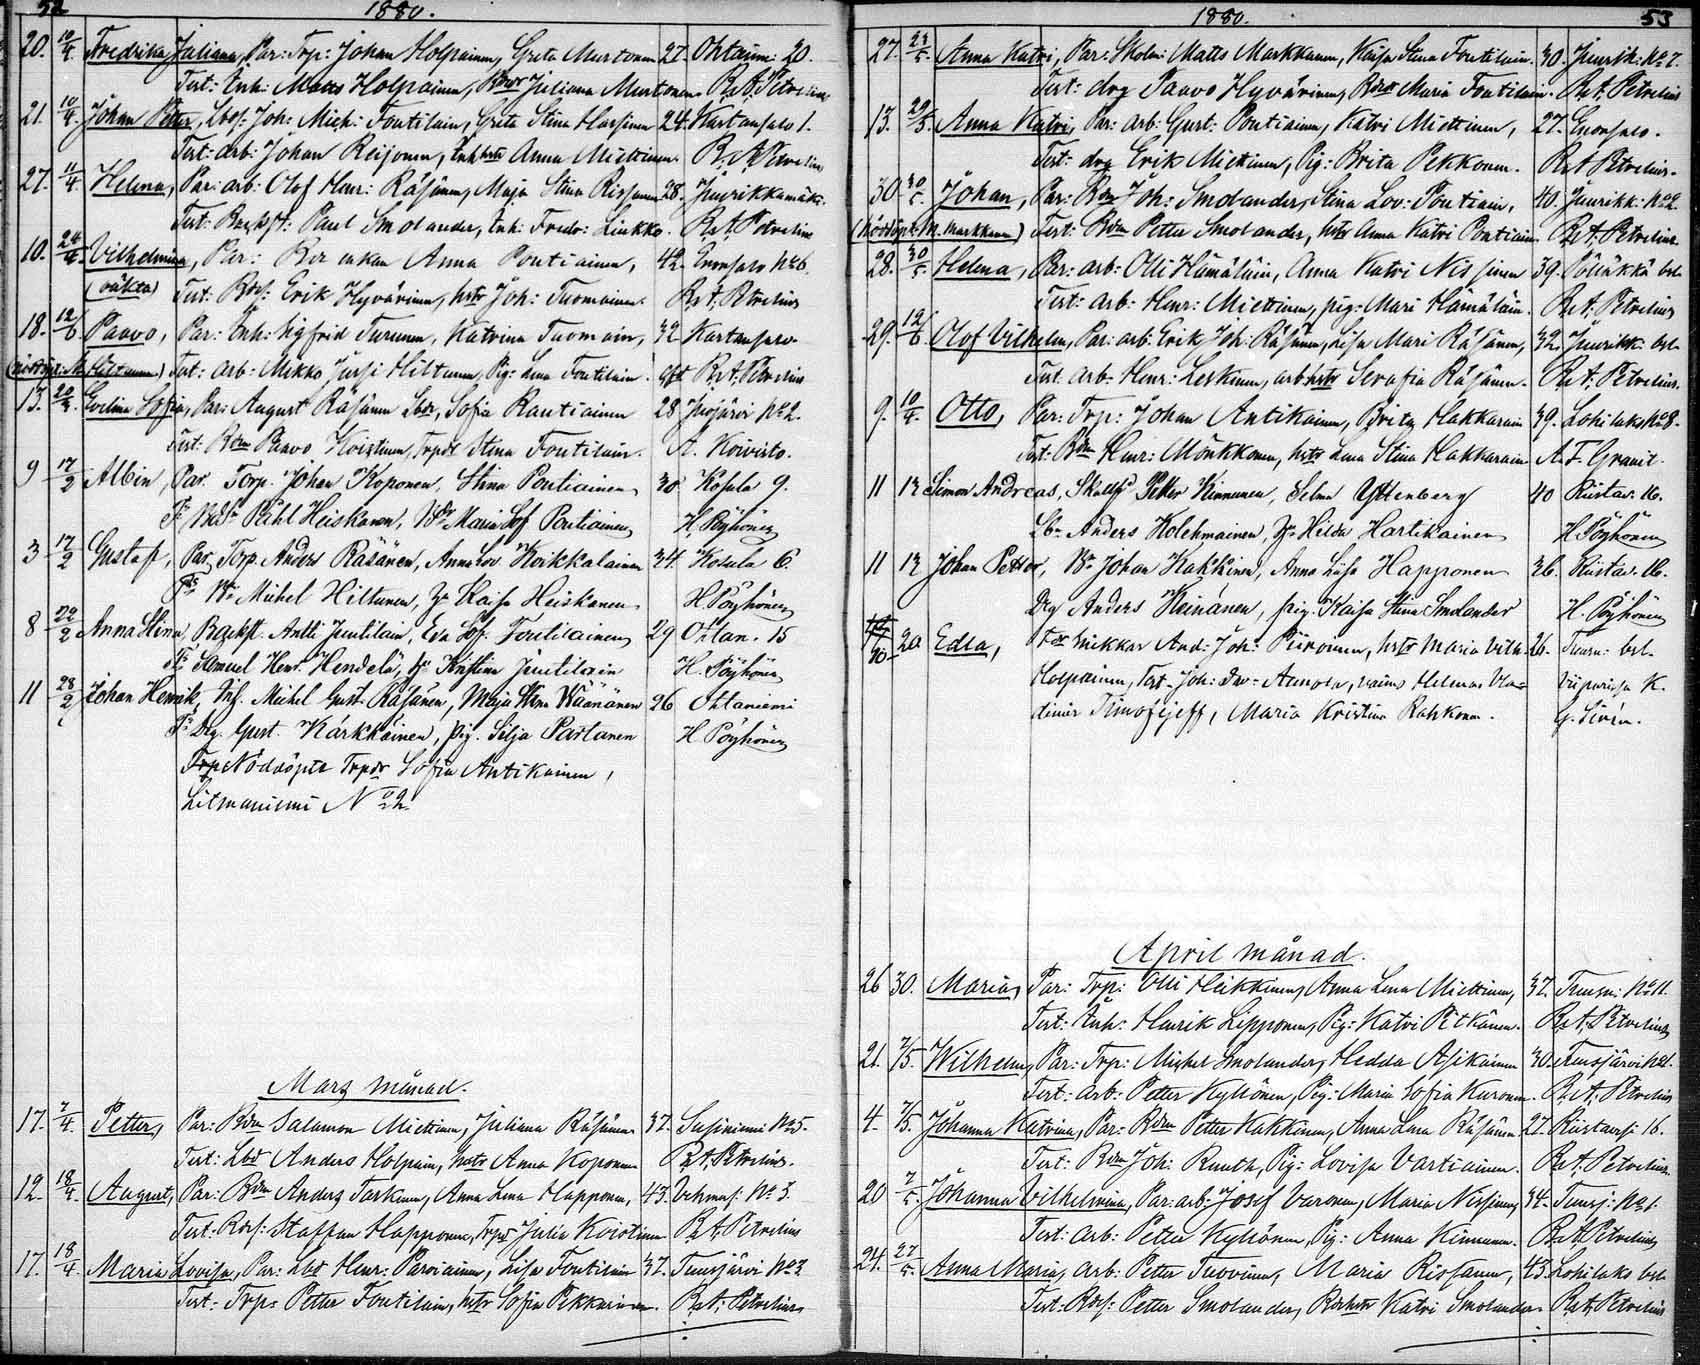 52 1880.
20. 10/4 Fredrika Juliana, Par: Trp: Johan Holpainen, Greta Murtonen 27. Ohtanni: 20.
Test: Enh: Matts Holpainen, Juliana Murtonen R. A. Petrelius
21. 10/4 Johan Petter, Lbos: Joh: Mich: Foutilain, Greta Stina Hassinen 24. Kartansalo 1.
Test: arb: Johan Reijonen, Enkhstr Anna Miettinen. R. A. Petrelius
27. 11/4 Helena, Par: arb: Olof Henr: Räsänen, Maja Stina Rissanen 28. Juurikkamäki.
Test: Paul Smolander, Enh: Fredr: Linkko. R. A. Petrelius
10. 24/4 Vilhelmina, Par: enkan Anna Pontiainen, 42. Enonsalo No 6.
(oäkta) Test: Erik Hyvärinen, hstr Joh: Tuomainen. R. A. Petrelius
18. 12/6 Paavo, Par: Enh: Sigfrid Turunen, Katrina Tuomain, 32 Kartansalo
(nöddöpt: M. Hiltunen) Test: arb: Mikko Jürji Hiltunen, Pig: Lena Foutilain. R. A. Petrelius
13. Evelina Sofia, Par: August Räsänen Lbde, Sofia Rautiainen 28 Juojärvi No 2.
Test: Bdn Paavo Koistinen, Trpdr Stina Foutilain. A. Koivisto.
9 17/2 Albin, Par. Torp. Johan Koponen, Stina Pontiainen 30. Kosula 9.
Påhl Heiskanen, Maria Sof Pontiainen H. Pöyhönen
3 17/2 Gustaf, Par. Torp. Anders Räsänen, Anna Lov Koikkalainen 34. Kosula 6.
Michel Hiltunen, Kaisa Heiskanen H. Pöyhönen
8 22/2 Anna Stina, Backst. Antti Juutilain, Eva Sof. Foutilainen 29 Ohtan. 15
Samuel Henr. Hendelä, Kristina Juutilain H. Pöyhönen
11 28/2 Johan Henrik, Michel Gust. Räsänen, Maja Stina Wäänänen 26 Ohtaniemi
Drg. Gust. Kärkkäinen, pig. Silja Partanen H. Pöyhönen
Nöddöpte Trpdr Sofia Antikainen,
Litmaniemi No 2.
Mars månad.
17. 7/4 Petter, Par: Bdn Salamon Miettinen, Juliana Räsänen 37. Susiniemi No 5.
Test: Lbd Anders Holpain, hstr Anna Koponen R. A. Petrelius.
12. 18/4 August, Par: Bdn Anders Tarkinen, Anna Lena Happonen, 43. No 3.
Test: Staffan Happonen, Trpdr Julia Koistinen R. A. Petrelius
17. 18/4 Maria Lovisa, Par: Lbd Henr: Paroiainen, Lisa Foutilain 37. Tuusjärvi No 3
Test: Trp: Petter Foutilain, hstr Sofia Pekkarinen. R. A. Petrelius
1880. 53
27. 23/5 Anna Katri, Par: Skolm: Matts Markkanen, Kaisa Stina Foutilain. 30. Juurik: No 7.
Test: drg Paavo Hyvärinen, Maria Foutilain. R. A. Petrelius
13. 29/5 Anna Katri, Par: arb: Gust: Pontiainen, Katri Miettinen, 27. Enonsalo.
Test: drg Erik Miettinen, Pig: Brita Pekkonen. R. A. Petrelius.
30. 30/5 Johan, Par: Bdn Joh: Smolander, Stina Lov: Pontiain, 40. Juurikk: No 2.
(Nöddöpt: M. Markkanen) Test: Bdn Petter Smolander, hstr Anna Katri Pontiain R. A. Petrelius.
28. 30/5 Helena, Par: arb: Olli Hämäläin, Anna Katri Nissinen 39. Pölläkkä bel.
Test: arb: Henr: Miettinen, pig: Mari Hämäläin. R. A. Petrelius
29. 12/6 Olof Vilhelm, Par: arb: Erik Joh: Räsänen, Lisa Mari Räsänen, 32. Juurikk: bel.
Test. arb: Henr: Leskinen, arb:hstr Serafia Räsänen. R. A. Petrelius.
9. 10/4 Otto, Par: Trp: Johan Antikainen, Brita Hakkarain 39. Lohilaks No 8.
Test: Bdn Henr: Mönkkönen, hstr Lena Stina Hakkarain A. F. Granit.
11 12 Simon Andreas, Petter Kinnunen, Selma Yttenberg 40 Riistav. 16.
Anders Kolehmainen, Hilda Hartikainen H. Pöyhönen
11 12 Johan Petter, Johan Kakkinen, Anna Lisa Happonen 36. Riistav. 16.
Drg Anders Heinänen, pig. Kaisa Stina Smolander H. Pöyhönen
20 Edla, And: Joh: Piironen, hstr Maria Vilh: 26. Tuusn: bel.
Holpainen, Test: Joh: Dav: Annola, Helena Vla- Viipurissa K.
dimir Timofejeff, Maria Kristina Rahkonen. G. Sirén.
April månad.
26 30. Maria, Par: Trp: Olli Heikkinen, Anna Lena Miettinen, 37. Tuusn: No 11.
Test: Enh: Henrik Lipponen, Pig: Katri Pitkänen. R. A. Petrelius
21. 7/5 Wilhelm, Par: Trp: Michel Smolander, Hedda Asikainen 30. Tuusjärvi No 1.
Test: arb: Petter Kyhönen, Pig: Maria Sofia Kuronen. R. A. Petrelius
4. 7/5 Johanna Katrina, Par: Bdn Petter Kakkinen, Anna Lena Räsänen 27. Riistaves: 16.
Test: Bdn Joh: Ruuth, Pig: Lovisa Vartiainen. R. A. Petrelius.
20 7/5 Johanna Vilhelmina, Par: arb: Josef Varonen, Maria Nissinen, 34. Tuusj: No 1.
Test: arb: Petter Kyhönen, Pig: Anna Kinnunen. R. A. Petrelius
24. 27/5 Anna Maria, arb: Petter Tuovinen, Maria Rissanen, 43. Lohilaks bel.
Test: Petter Smolander, Katri Smolander. R. A. Petrelius